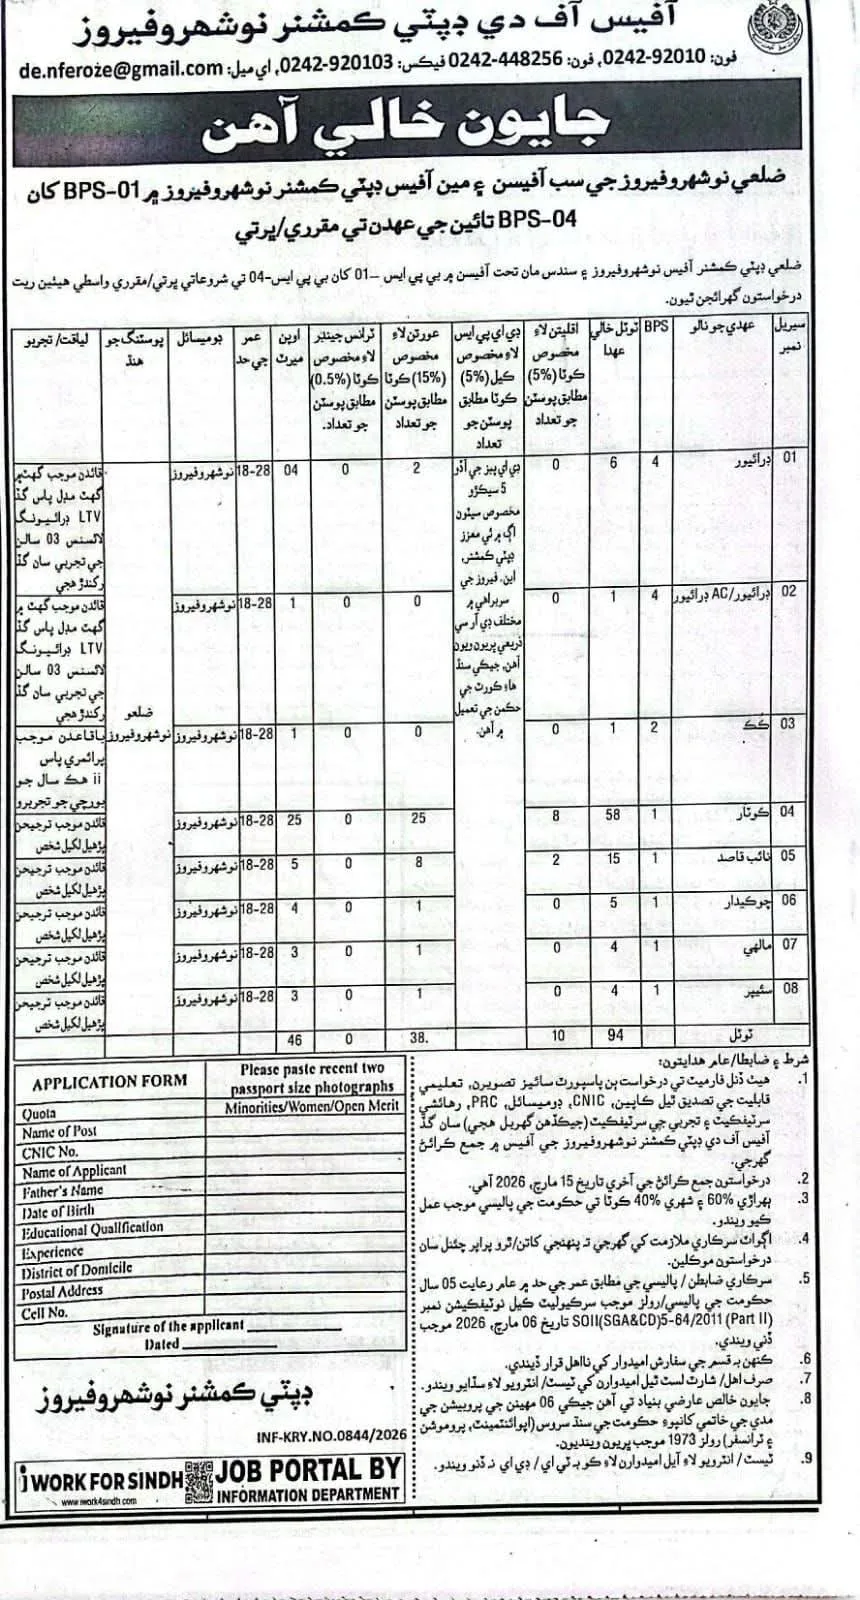 آفيس آف دي ڊپٽي ڪمشنر نوشهروفيروز
فون: 92010-0242، فون: 448256-0242 فيڪس: 920103-0242، اي ميل: de.nferoze@gmail.com
جايون خالي آهن
ضلعي نوشهروفيروز جي سب آفيسن ۽ مين آفيس ڊپٽي ڪمشنر نوشهروفيروز ۾ BPS-01 کان
BPS-04 تائين جي عهدن تي مقرري/ڀرتي
ضلعي ڊپٽي ڪمشنر آفيس نوشهروفيروز ۽ سندس مان تحت آفيسن ۾ بي پي ايس –01 کان بي پي ايس-04 تي شروعاتي ڀرتي/مقرري واسطي هيٺين ريت
درخواستون گهرائجن ٿيون.
سيريل نمبر | عهدي جو نالو | BPS | ٽوٽل خالي عهدا | اقليتن لاءِ مخصوص (5%) ڪوٽا مطابق پوسٽن جو تعداد | ڊي اي پي ايس لاءِ مخصوص ڪيل (5%) ڪوٽا مطابق پوسٽن جو تعداد | عورتن لاءِ مخصوص (15%) ڪوٽا مطابق پوسٽن جو تعداد | ٽرانس جينڊر لاءِ مخصوص ڪوٽا (0.5%) مطابق پوسٽن جو تعداد. | اوپن ميرٽ | عمر جي حد | ڊوميسائل | پوسٽنگ جو هنڌ | لياقت/ تجربو
01 | ڊرائيور | 4 | 6 | 0 | 2 | 0 | 04 | 18-28 | نوشهروفيروز | قائدن موجب گهٽ ۾ گهٽ مڊل پاس گڏ LTV ڊرائيونگ لائسنس 03 سالن جي تجربي سان گڏ رکندڙ هجي
ڊي اي پيز جي آڌر 5 سيڪڙو مخصوص سيٽون اڳ ۾ ئي معزز ڊپٽي ڪمشنر، اين. فيروز جي سربراهي ۾ مختلف ڊي آر سي ذريعي ڀريون ويون آهن، جيڪي سنڌ هاءِ ڪورٽ جي حڪمن جي تعميل ۾ آهن.
02 | ڊرائيور/AC ڊرائيور | 4 | 1 | 0 | 0 | 0 | 1 | 18-28 | نوشهروفيروز | قائدن موجب گهٽ ۾ گهٽ مڊل پاس گڏ LTV ڊرائيونگ لائسنس 03 سالن جي تجربي سان گڏ رکندڙ هجي
ضلعو نوشهروفيروز
03 | ڪُڪ | 2 | 1 | 0 | 0 | 0 | 1 | 18-28 | نوشهروفيروز | باقاعدن موجب پرائمري پاس ii هڪ سال جو بورچي جو تجربو
04 | ڪوٽار | 1 | 58 | 8 | 25 | 0 | 25 | 18-28 | نوشهروفيروز | قائدن موجب ترجيحن پڙهيل لکيل شخص
05 | نائب قاصد | 1 | 15 | 2 | 8 | 0 | 5 | 18-28 | نوشهروفيروز | قائدن موجب ترجيحن پڙهيل لکيل شخص
06 | چوڪيدار | 1 | 5 | 0 | 1 | 0 | 4 | 18-28 | نوشهروفيروز | قائدن موجب ترجيحن پڙهيل لکيل شخص
07 | مالهي | 1 | 4 | 0 | 1 | 0 | 3 | 18-28 | نوشهروفيروز | قائدن موجب ترجيحن پڙهيل لکيل شخص
08 | سئيپر | 1 | 4 | 0 | 1 | 0 | 3 | 18-28 | نوشهروفيروز | قائدن موجب ترجيحن پڙهيل لکيل شخص
ٽوٽل | 94 | 10 | 38. | 0 | 46
شرط ۽ ضابطا/عام هدايتون:
1. هيٺ ڏنل فارميٽ تي درخواست ٻن پاسپورٽ سائيز تصويرن، تعليمي
قابليت جي تصديق ٿيل ڪاپين، CNIC، ڊوميسائل، PRC، رهائشي
سرٽيفڪيٽ ۽ تجربي جي سرٽيفڪيٽ (جيڪڏهن گهربل هجي) سان گڏ
آفيس آف دي ڊپٽي ڪمشنر نوشهروفيروز جي آفيس ۾ جمع ڪرائڻ
گهرجي.
2. درخواستون جمع ڪرائڻ جي آخري تاريخ 15 مارچ، 2026 آهي.
3. ٻهراڙي 60% ۽ شهري 40% ڪوٽا تي حڪومت جي پاليسي موجب عمل
ڪيو ويندو.
4. اڳواٽ سرڪاري ملازمت کي گهرجي ته پنهنجي کاتن/ٿرو پراپر چئنل سان
درخواستون موڪلين.
5. سرڪاري ضابطن / پاليسي جي مطابق عمر جي حد ۾ عام رعايت 05 سال
حڪومت جي پاليسي/رولز موجب سرڪيوليٽ ڪيل نوٽيفڪيشن نمبر
SOII(SGA&CD)5-64/2011 (Part II) تاريخ 06 مارچ، 2026 موجب
ڏني ويندي.
6. ڪنهن به قسم جي سفارش اميدوار کي نااهل قرار ڏيندي.
7. صرف اهل/ شارٽ لسٽ ٿيل اميدوارن کي ٽيسٽ/ انٽرويو لاءِ سڏايو ويندو.
8. جايون خالص عارضي بنياد تي آهن جيڪي 06 مهينن جي پروبيشن جي
مدي جي خاتمي کانپوءِ حڪومت جي سنڌ سروس (اپوائنٽمينٽ، پروموشن
۽ ٽرانسفر) رولز 1973 موجب ڀريون وينديون.
9. ٽيسٽ/ انٽرويو لاءِ آيل اميدوارن لاءِ ڪو به ٽي اي/ ڊي اي نه ڏنو ويندو.
APPLICATION FORM
Please paste recent two
passport size photographs
Quota | Minorities/Women/Open Merit
Name of Post
CNIC No.
Name of Applicant
Father's Name
Date of Birth
Educational Qualification
Experience
District of Domicile
Postal Address
Cell No.
Signature of the applicant
Dated
ڊپٽي ڪمشنر نوشهروفيروز
INF-KRY.NO.0844/2026
i WORK FOR SINDH
www.iwork4sindh.com
JOB PORTAL BY
INFORMATION DEPARTMENT